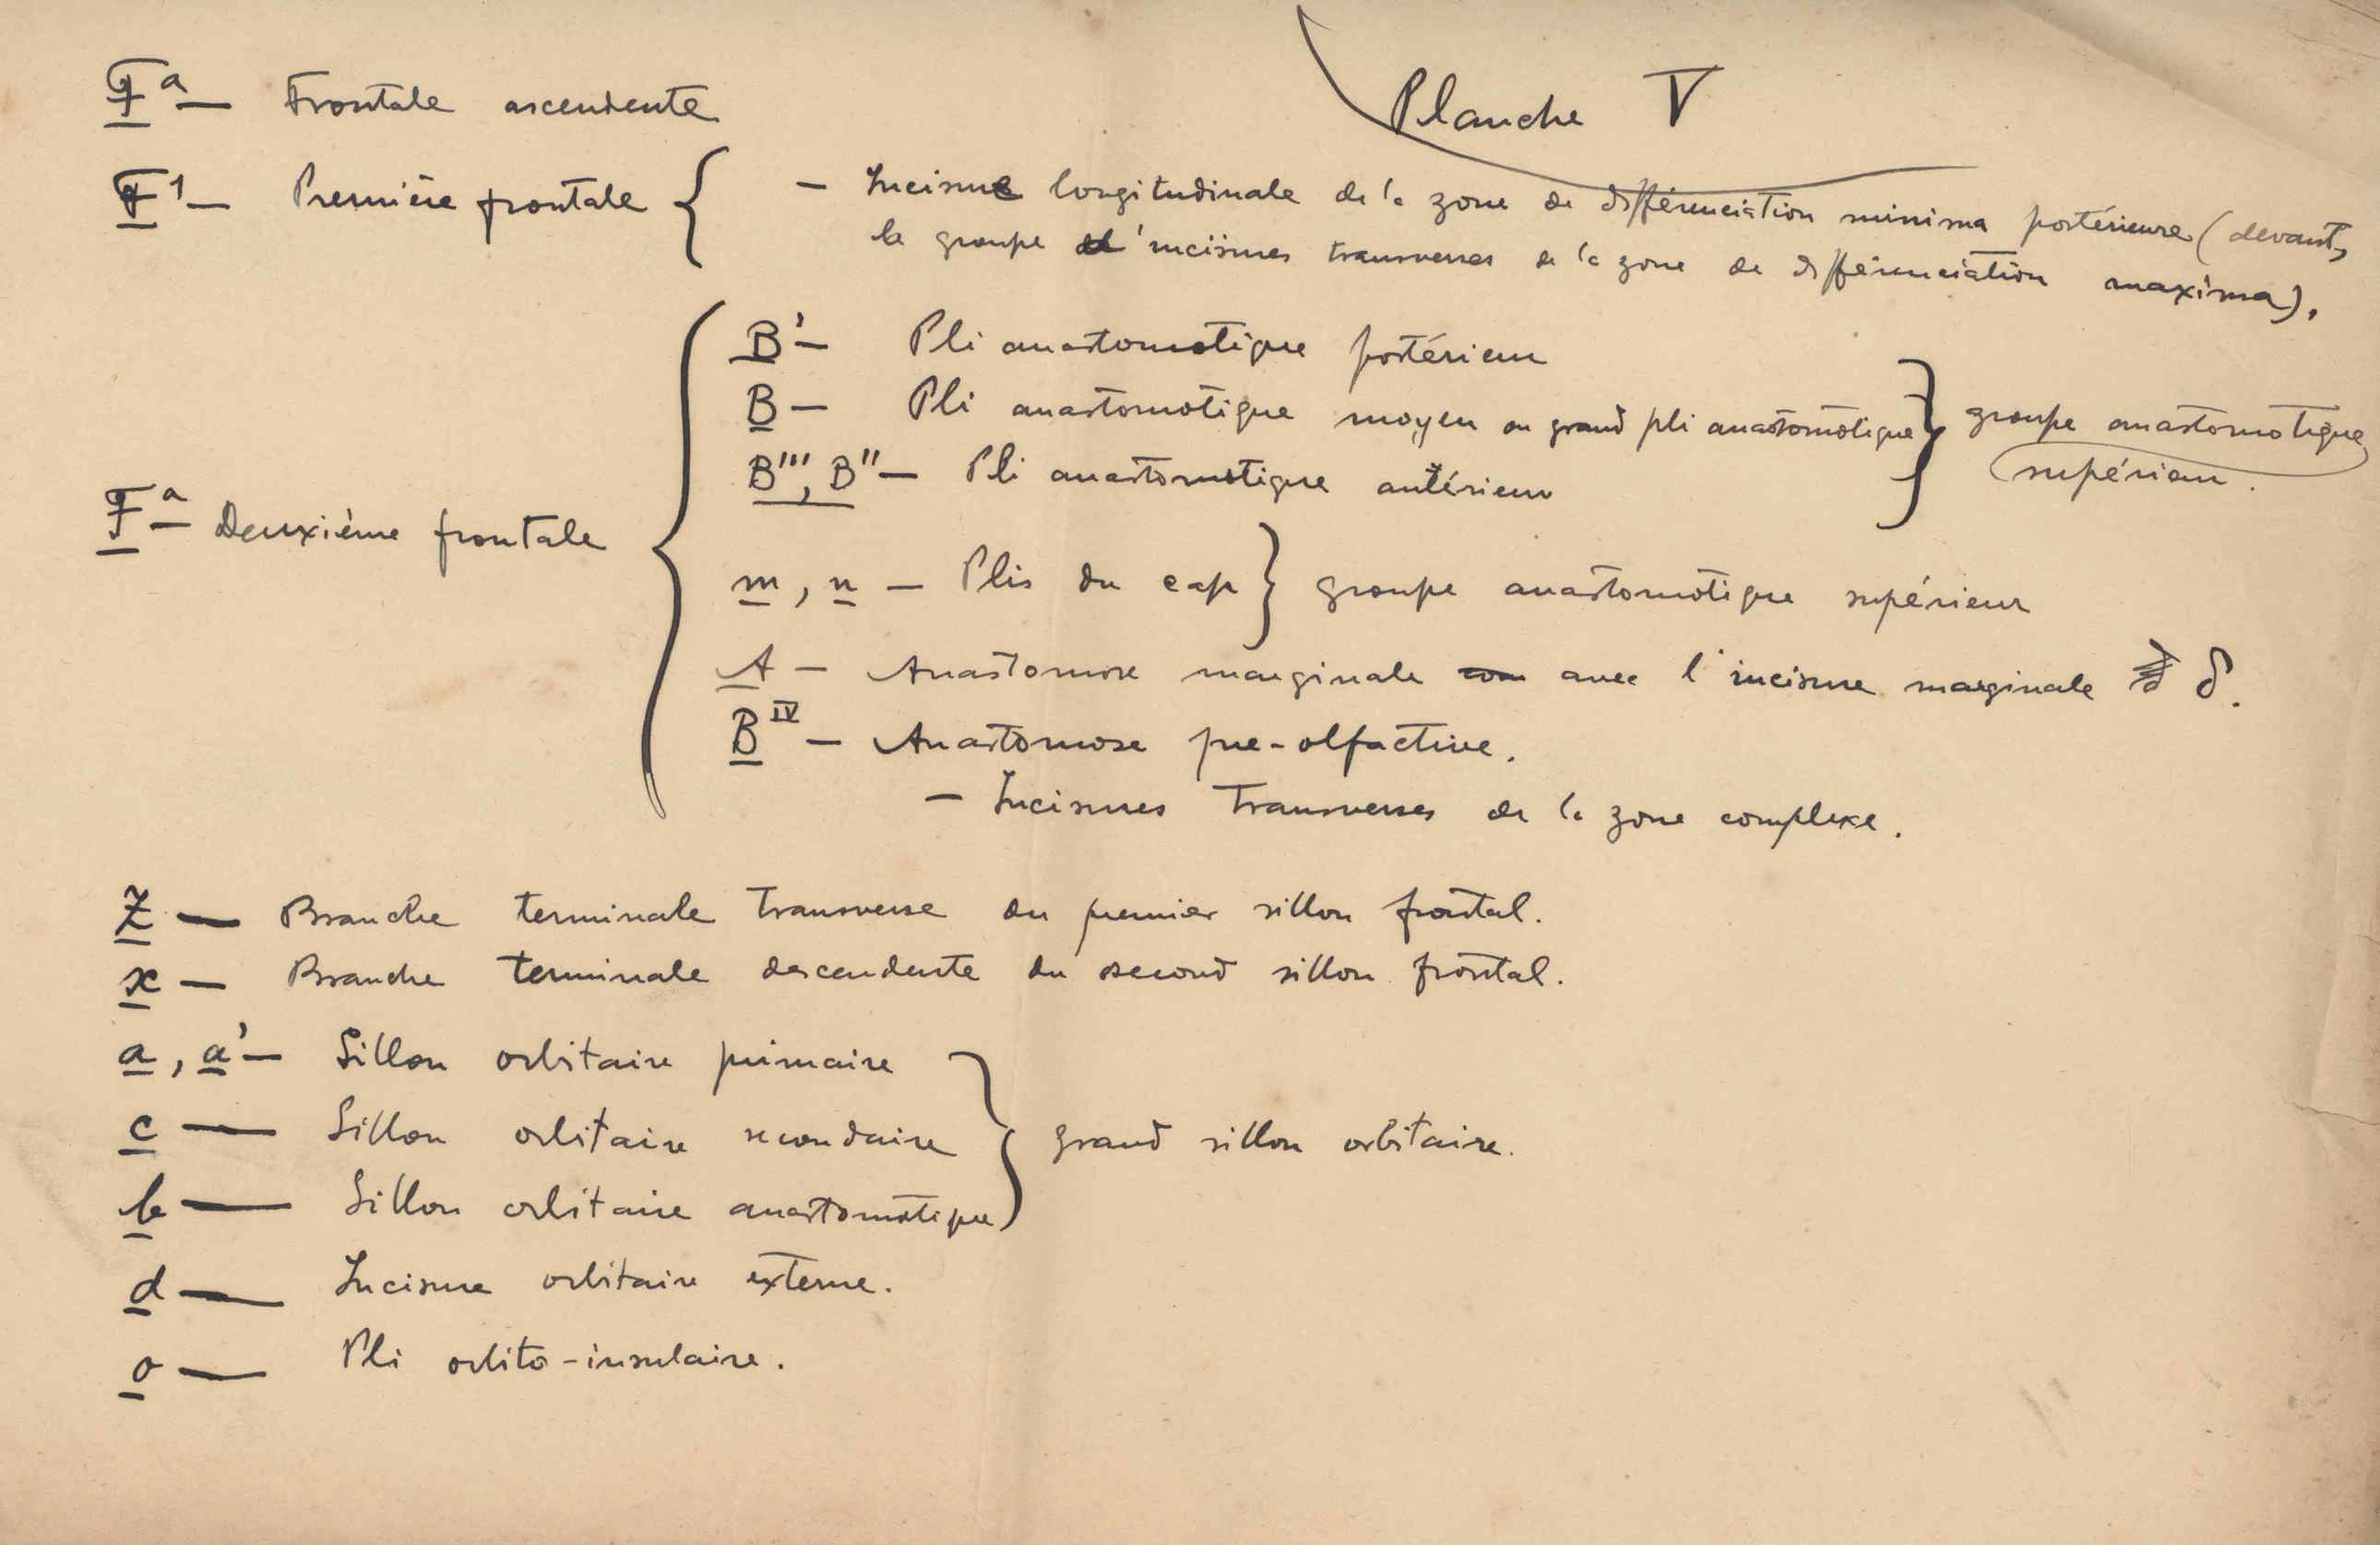 Planche V
Fᵃ — Frontale ascendente
F¹ — Première frontale { — Incisure longitudinale de la zone de différenciation minima postérieure (devant,
le groupe d'incisures transverses de la zone de différenciation maxima).
B' — Pli anastomotique postérieur
B — Pli anastomotique moyen ou grand pli anastomotique } groupe anastomotique
B''', B'' — Pli anastomotique antérieur
supérieur.
Fᵃ — Deuxième frontale {
m, n — Plis du cap } groupe anastomotique supérieur
A — Anastomose marginale avec l'incisure marginale δ.
Bᴵⱽ — Anastomose pre-olfactive.
— Incisures transverses de la zone complexe.
Z — Branche terminale transverse du premier sillon frontal.
x — Branche terminale descendente du second sillon frontal.
a, a' — Sillon orbitaire primaire
c — Sillon orbitaire secondaire } grand sillon orbitaire.
b — Sillon orbitaire anastomotique
d — Incisure orbitaire externe.
o — Pli orbito-insulaire.